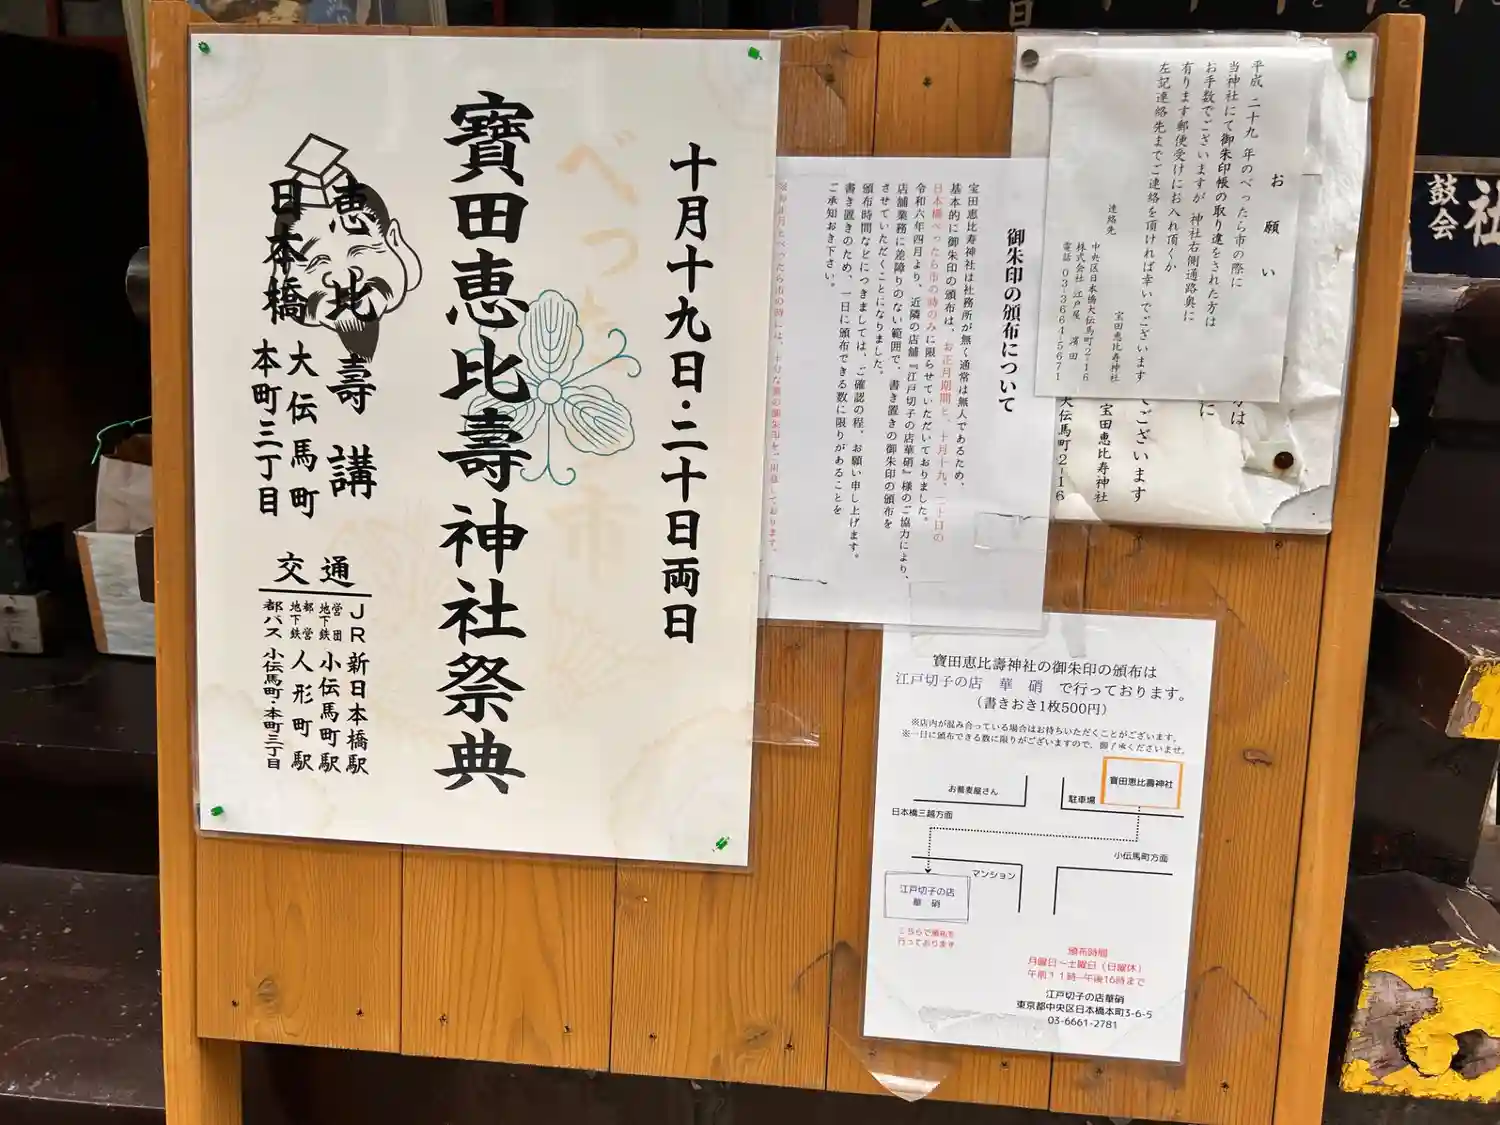 十月十九日・二十日両日
べったら市
寳田恵比壽神社祭典
恵比壽講
日本橋
大伝馬町
本町三丁目
交通
JR 新日本橋駅
営団地下鉄 小伝馬町駅
都営地下鉄 人形町駅
都バス 小伝馬町・本町三丁目
御朱印の頒布について
宝田恵比寿神社は社務所が無く通常は無人であるため、
基本的に御朱印の頒布は、お正月期間と、十月十九、二十日の
日本橋べったら市の時のみに限らせていただいておりました。
令和六年四月より、近隣の店舗『江戸切子の店華硝』様のご協力により、
店舗業務に差障りのない範囲で、書き置きの御朱印の頒布を
させていただくことになりました。
頒布時間などにつきましては、ご確認の程、お願い申し上げます。
書き置きのため、一日に頒布できる数に限りがあることを
ご承知おき下さい。
お願い
平成二十九年のべったら市の際に
当神社にて御朱印帳の取り違をされた方は
お手数でございますが神社右側通路奥に
有ります郵便受けにお入れ頂くか
左記連絡先までご連絡を頂ければ幸いでございます
宝田恵比寿神社
連絡先
中央区日本橋大伝馬町2-16
株式会社 江戸屋 濱田
電話 03-3664-5671
方は
に
でございます
宝田恵比寿神社
大伝馬町2-16
寶田恵比壽神社の御朱印の頒布は
江戸切子の店 華硝 で行っております。
（書きおき1枚500円）
※店内が混み合っている場合はお待ちいただくことがございます。
※一日に頒布できる数に限りがございますので、御了承くださいませ。
寶田恵比壽神社
お蕎麦屋さん
駐車場
日本橋三越方面
小伝馬町方面
マンション
江戸切子の店
華 硝
こちらで頒布を
行っております
頒布時間
月曜日～土曜日（日曜休）
午前11時～午後16時まで
江戸切子の店華硝
東京都中央区日本橋本町3-6-5
03-6661-2781
鼓会
社